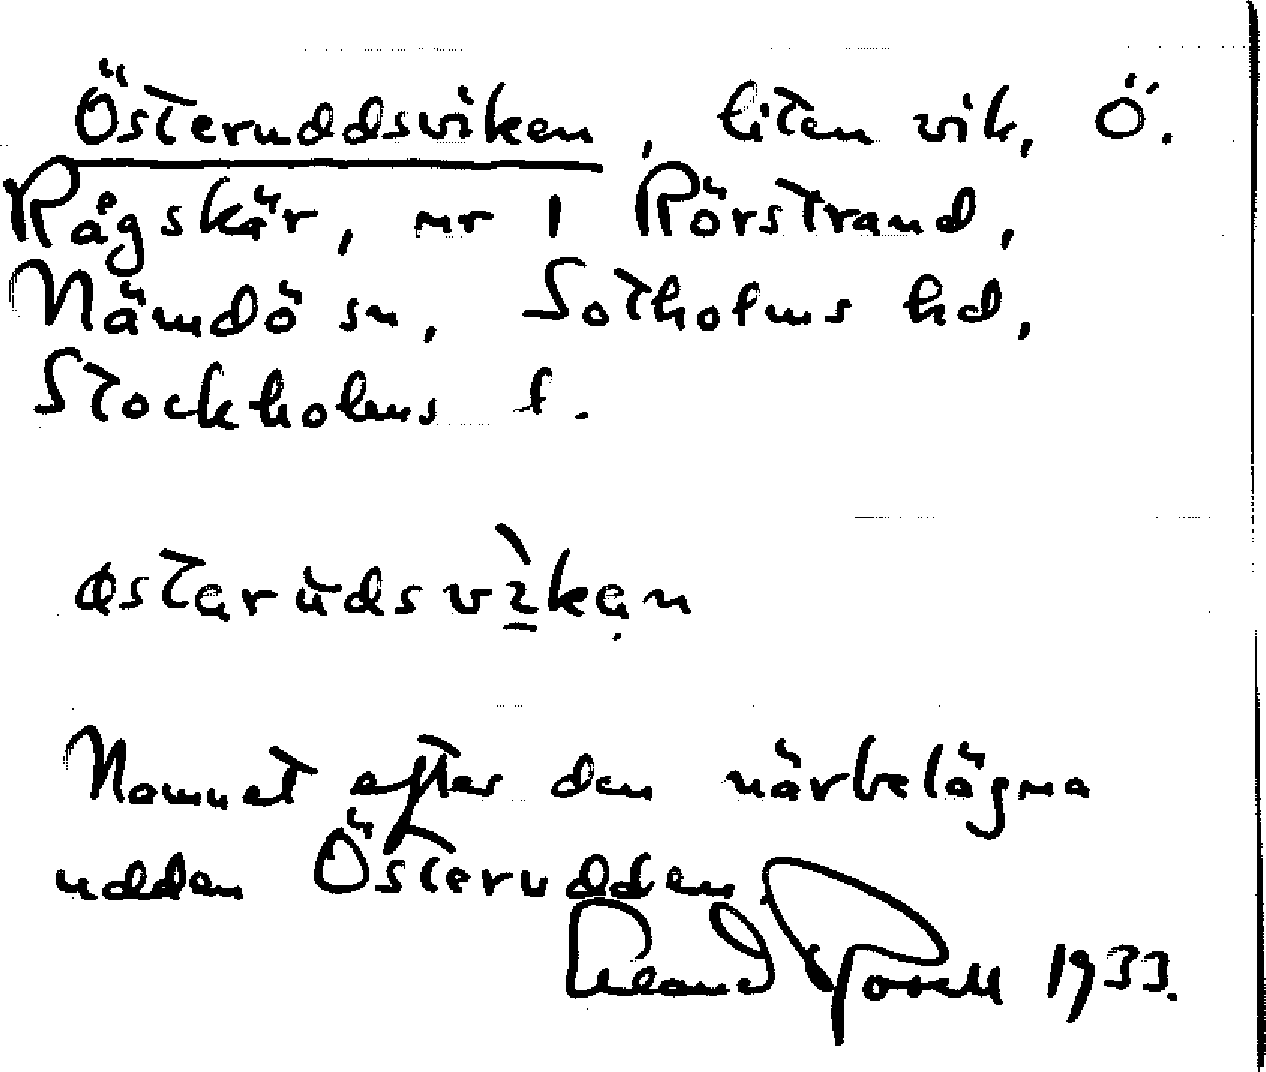 Österuddsviken, liten vik, Ö.
Rågskär, nr 1 Rörstrand,
Nämdö sn, Sotholms hd,
Stockholms l.
østarùdsvìkan
Namnet efter den närbelägna
udden Österudden
1933.